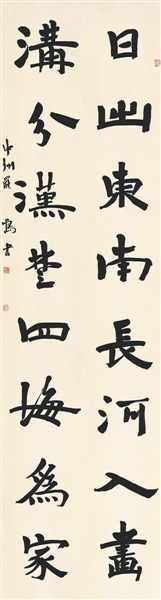 日出東南長河入畫
溝分漢楚四海為家
中州羅鳴書